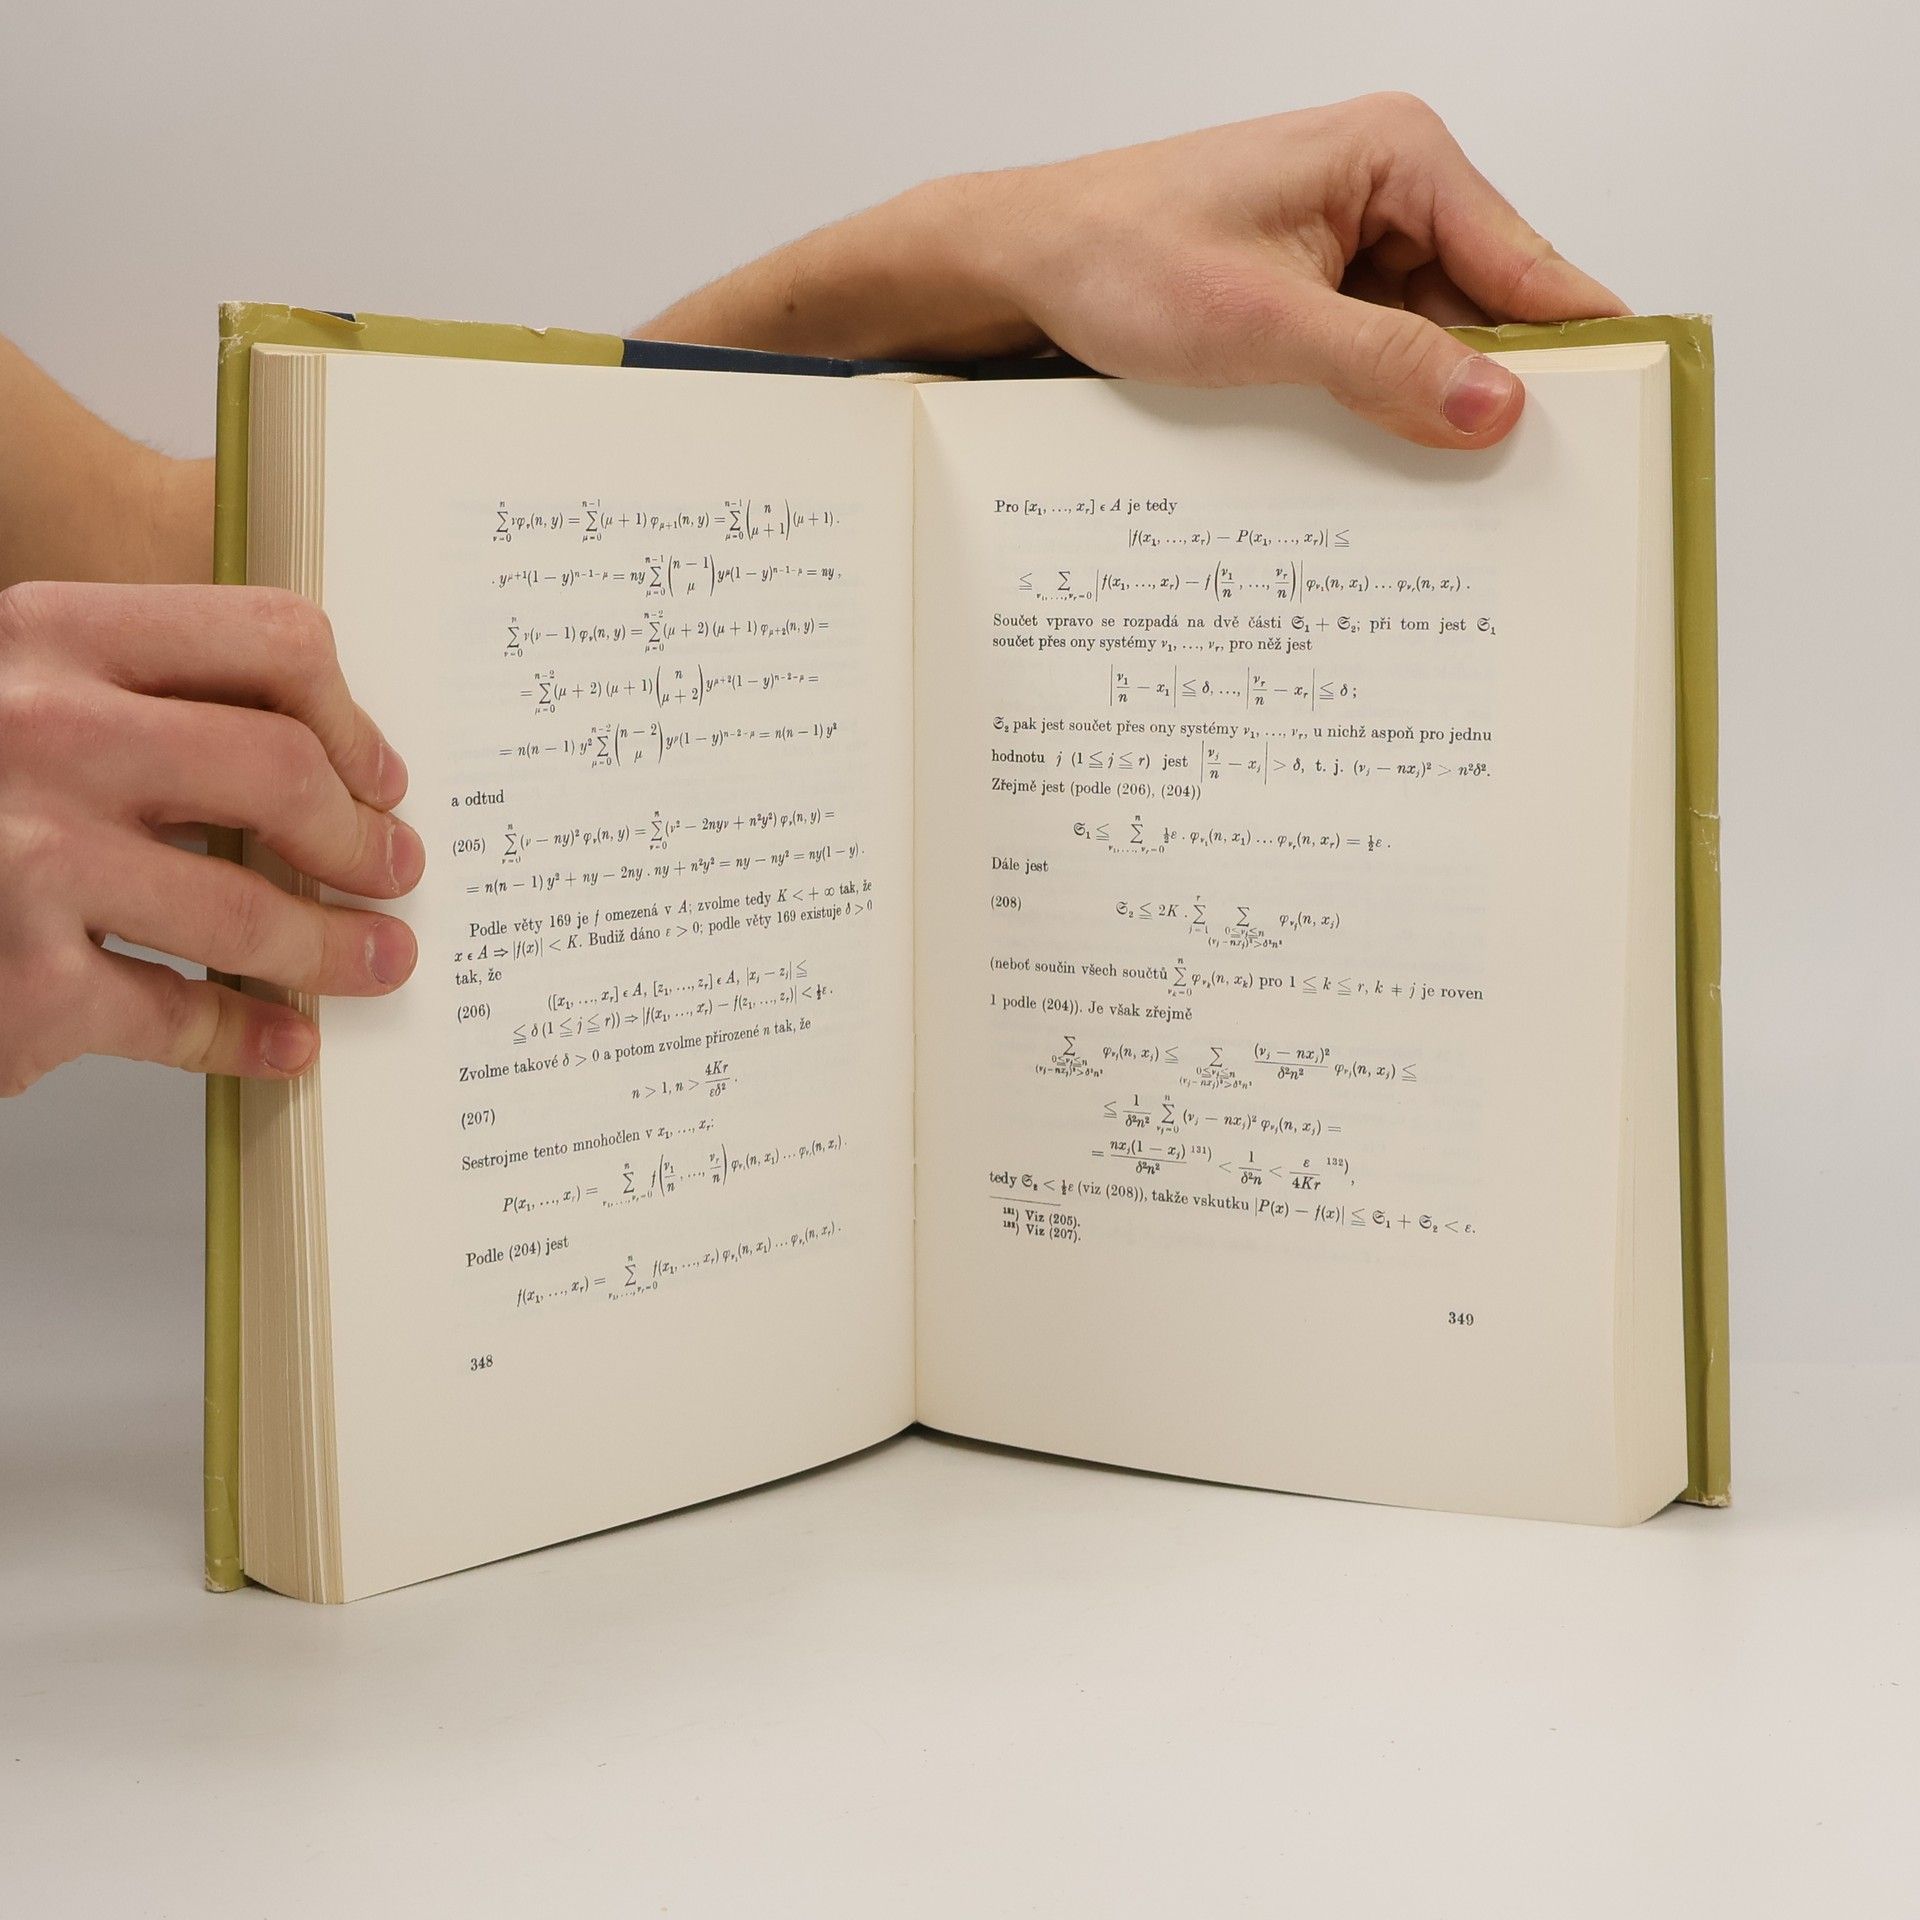 ∑_{ν=0}^{n} νφ_ν(n, y) = ∑_{μ=0}^{n−1} (μ + 1) φ_{μ+1}(n, y) = ∑_{μ=0}^{n−1} \binom{n}{μ + 1} (μ + 1) .
. y^{μ+1}(1 − y)^{n−1−μ} = ny ∑_{μ=0}^{n−1} \binom{n − 1}{μ} y^μ(1 − y)^{n−1−μ} = ny ,
∑_{ν=0}^{n} ν(ν − 1) φ_ν(n, y) = ∑_{μ=0}^{n−2} (μ + 2) (μ + 1) φ_{μ+2}(n, y) =
= ∑_{μ=0}^{n−2} (μ + 2) (μ + 1) \binom{n}{μ + 2} y^{μ+2}(1 − y)^{n−2−μ} =
= n(n − 1) y² ∑_{μ=0}^{n−2} \binom{n − 2}{μ} y^μ(1 − y)^{n−2−μ} = n(n − 1) y²
a odtud
(205) ∑_{ν=0}^{n} (ν − ny)² φ_ν(n, y) = ∑_{ν=0}^{n} (ν² − 2nyν + n²y²) φ_ν(n, y) =
= n(n − 1) y² + ny − 2ny . ny + n²y² = ny − ny² = ny(1 − y) .
Podle věty 169 je f omezená v A; zvolme tedy K < + ∞ tak, že
x ϵ A ⇒ |f(x)| < K. Budiž dáno ε > 0; podle věty 169 existuje δ > 0
tak, že
(206) ([x₁, …, x_r] ϵ A, [z₁, …, z_r] ϵ A, |x_j − z_j| ≦
≦ δ (1 ≦ j ≦ r)) ⇒ |f(x₁, …, x_r) − f(z₁, …, z_r)| < ½ε .
Zvolme takové δ > 0 a potom zvolme přirozené n tak, že
(207) n > 1, n > \frac{4Kr}{εδ²} .
Sestrojme tento mnohočlen v x₁, …, x_r:
P(x₁, …, x_r) = ∑_{ν₁, …, ν_r=0}^{n} f(\frac{ν₁}{n} , …, \frac{ν_r}{n}) φ_{ν₁}(n, x₁) … φ_{ν_r}(n, x_r) .
Podle (204) jest
f(x₁, …, x_r) = ∑_{ν₁, …, ν_r=0}^{n} f(x₁, …, x_r) φ_{ν₁}(n, x₁) … φ_{ν_r}(n, x_r) .
348
Pro [x₁, …, x_r] ϵ A je tedy
|f(x₁, …, x_r) − P(x₁, …, x_r)| ≦
≦ ∑_{ν₁, …, ν_r=0}^{n} |f(x₁, …, x_r) − f(\frac{ν₁}{n} , …, \frac{ν_r}{n})| φ_{ν₁}(n, x₁) … φ_{ν_r}(n, x_r) .
Součet vpravo se rozpadá na dvě části 𝔖₁ + 𝔖₂; při tom jest 𝔖₁
součet přes ony systémy ν₁, …, ν_r, pro něž jest
|\frac{ν₁}{n} − x₁| ≦ δ, …, |\frac{ν_r}{n} − x_r| ≦ δ ;
𝔖₂ pak jest součet přes ony systémy ν₁, …, ν_r, u nichž aspoň pro jednu
hodnotu j (1 ≦ j ≦ r) jest |\frac{ν_j}{n} − x_j| > δ, t. j. (ν_j − nx_j)² > n²δ².
Zřejmě jest (podle (206), (204))
𝔖₁ ≦ ∑_{ν₁, …, ν_r=0}^{n} ½ε . φ_{ν₁}(n, x₁) … φ_{ν_r}(n, x_r) = ½ε .
Dále jest
(208) 𝔖₂ ≦ 2K . ∑_{j=1}^{r} ∑_{0≦ν_j≦n, (ν_j−nx_j)²>δ²n²} φ_{ν_j}(n, x_j)
(neboť součin všech součtů ∑_{ν_k=0}^{n} φ_{ν_k}(n, x_k) pro 1 ≦ k ≦ r, k ≠ j je roven
1 podle (204)). Je však zřejmě
∑_{0≦ν_j≦n, (ν_j−nx_j)²>δ²n²} φ_{ν_j}(n, x_j) ≦ ∑_{0≦ν_j≦n, (ν_j−nx_j)²>δ²n²} \frac{(ν_j − nx_j)²}{δ²n²} φ_{ν_j}(n, x_j) ≦
≦ \frac{1}{δ²n²} ∑_{ν_j=0}^{n} (ν_j − nx_j)² φ_{ν_j}(n, x_j) =
= \frac{nx_j(1 − x_j)}{δ²n²} ¹³¹) < \frac{1}{δ²n} < \frac{ε}{4Kr} ¹³²),
tedy 𝔖₂ < ½ε (viz (208)), takže vskutku |P(x) − f(x)| ≦ 𝔖₁ + 𝔖₂ < ε.
¹³¹) Viz (205).
¹³²) Viz (207).
349